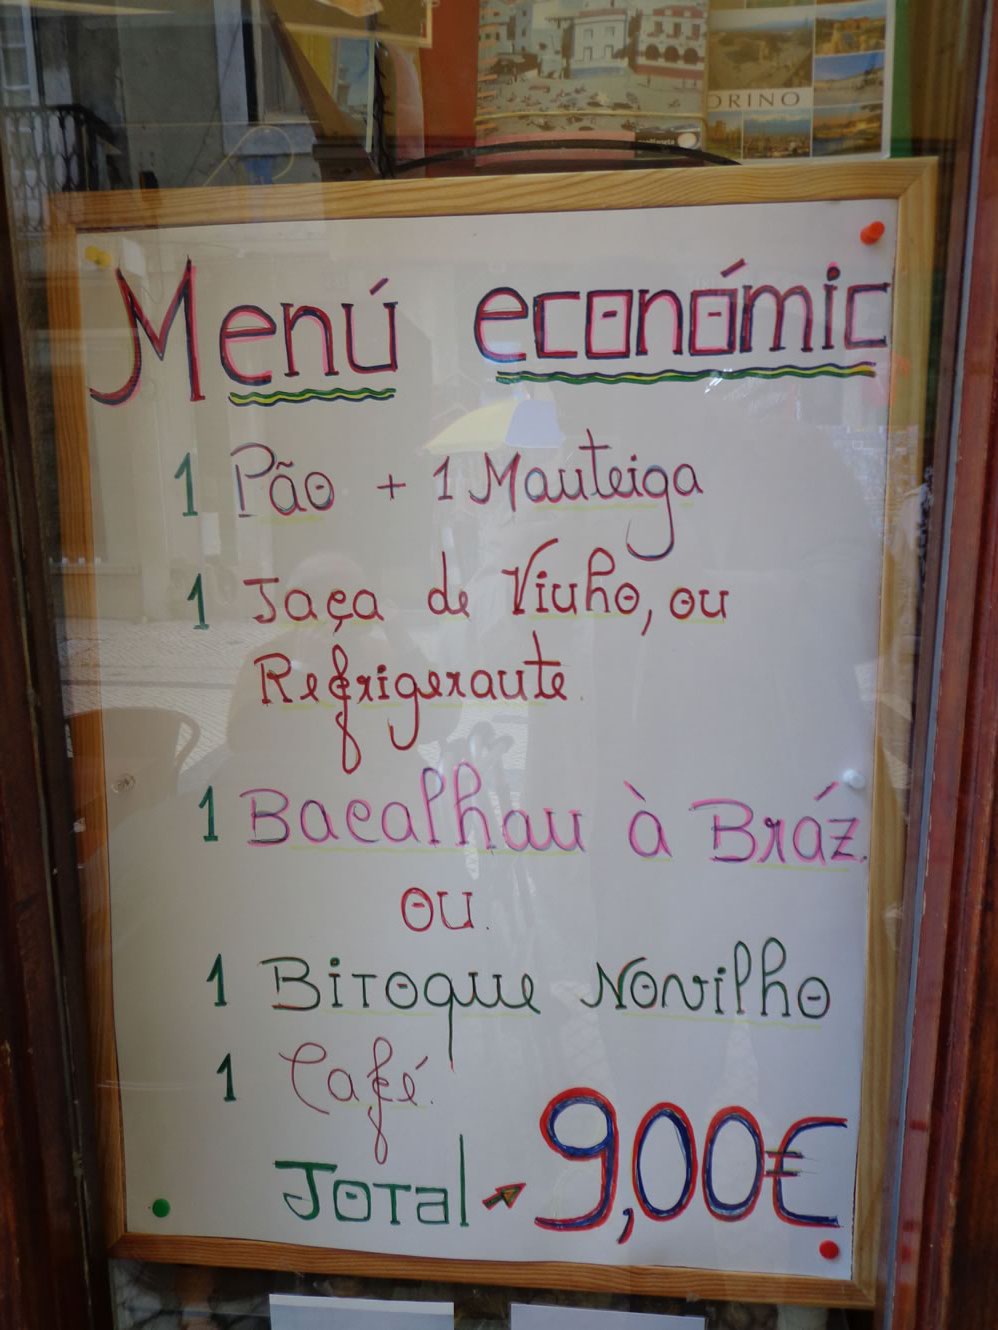 ORINO
Menú económic
1 Pão + 1 Manteiga
1 Taça de Vinho, ou
Refrigerante.
1 Bacalhau à Bráz.
ou.
1 Bitoque Novilho
1 Café.
Total → 9,00€